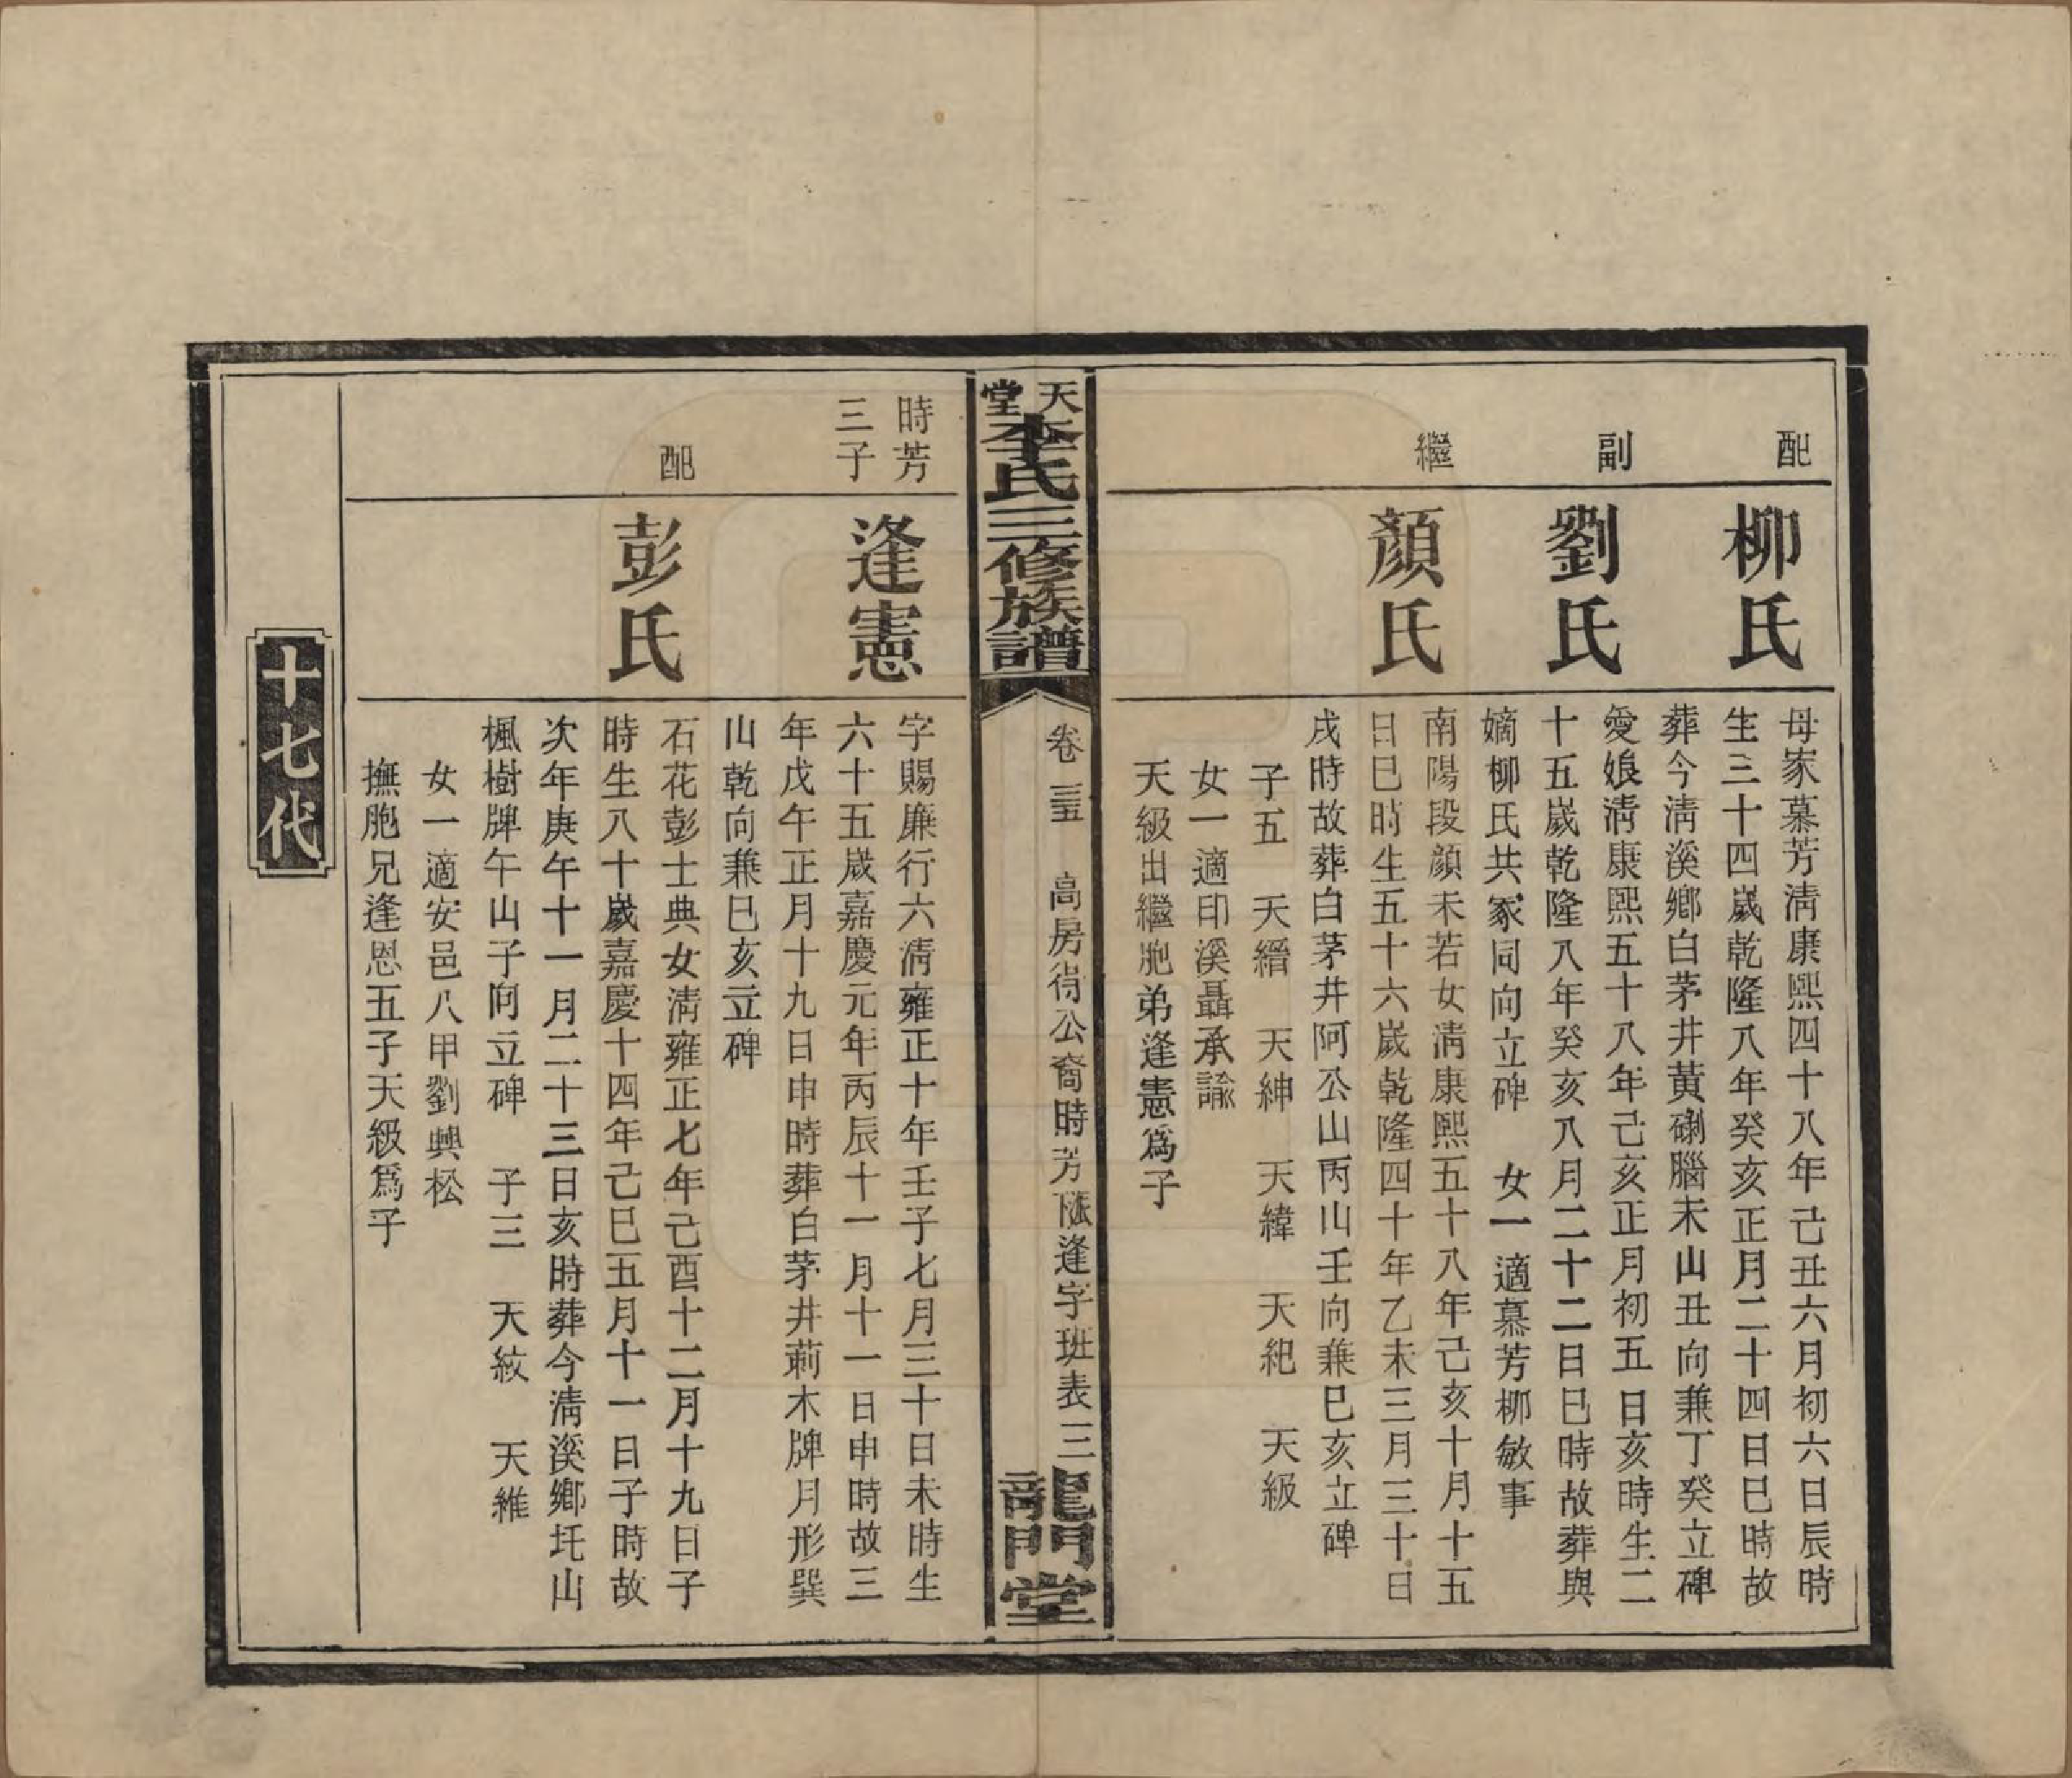 配
柳氏
母家慕芳淸康熙四十八年己丑六月初六日辰時
生三十四歲乾隆八年癸亥正月二十四日巳時故
葬今淸溪鄉白茅井黃磡腦未山丑向兼丁癸立碑
副
劉氏
愛娘淸康熙五十八年己亥正月初五日亥時生二
十五歲乾隆八年癸亥八月二十二日巳時故葬與
嫡柳氏共冢同向立碑　女一適慕芳柳敏事
繼
顏氏
南陽段顏未若女淸康熙五十八年己亥十月十五
日巳時生五十六歲乾隆四十年乙未三月三十日
戌時故葬白茅井阿公山丙山壬向兼巳亥立碑
子五　天縉　天紳　天緯　天紀　天級
女一適印溪聶承諭
天級出繼胞弟逢憲爲子
天堂李氏三修族譜
卷三五　高房犕公裔時芳派逢字班表三
龍門堂
時芳
三子
逢憲
字賜廉行六淸雍正十年壬子七月三十日未時生
六十五歲嘉慶元年丙辰十一月十一日申時故三
年戊午正月十九日申時葬白茅井莿木牌月形巽
山乾向兼巳亥立碑
配
彭氏
石花彭士典女淸雍正七年己酉十二月十九日子
時生八十歲嘉慶十四年己巳五月十一日子時故
次年庚午十一月二十三日亥時葬今淸溪鄉圫山
楓樹牌午山子向立碑　子三　天紋　天維
女一適安邑八甲劉興松
撫胞兄逢恩五子天級爲子
十七代